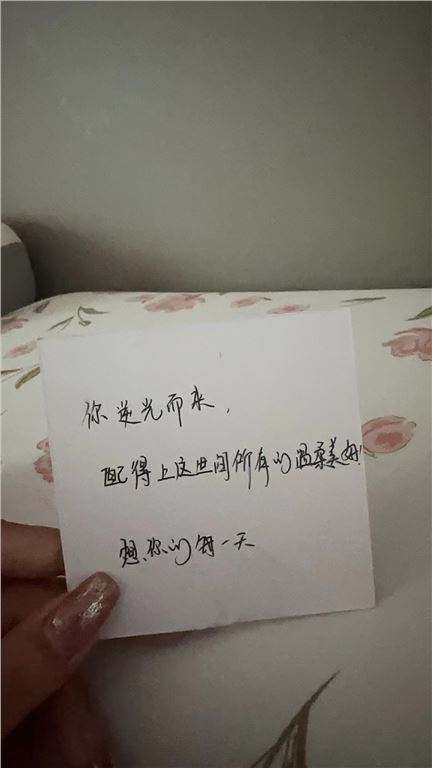 你逆光而来，
配得上这世间所有的温柔美好!
想你的每一天